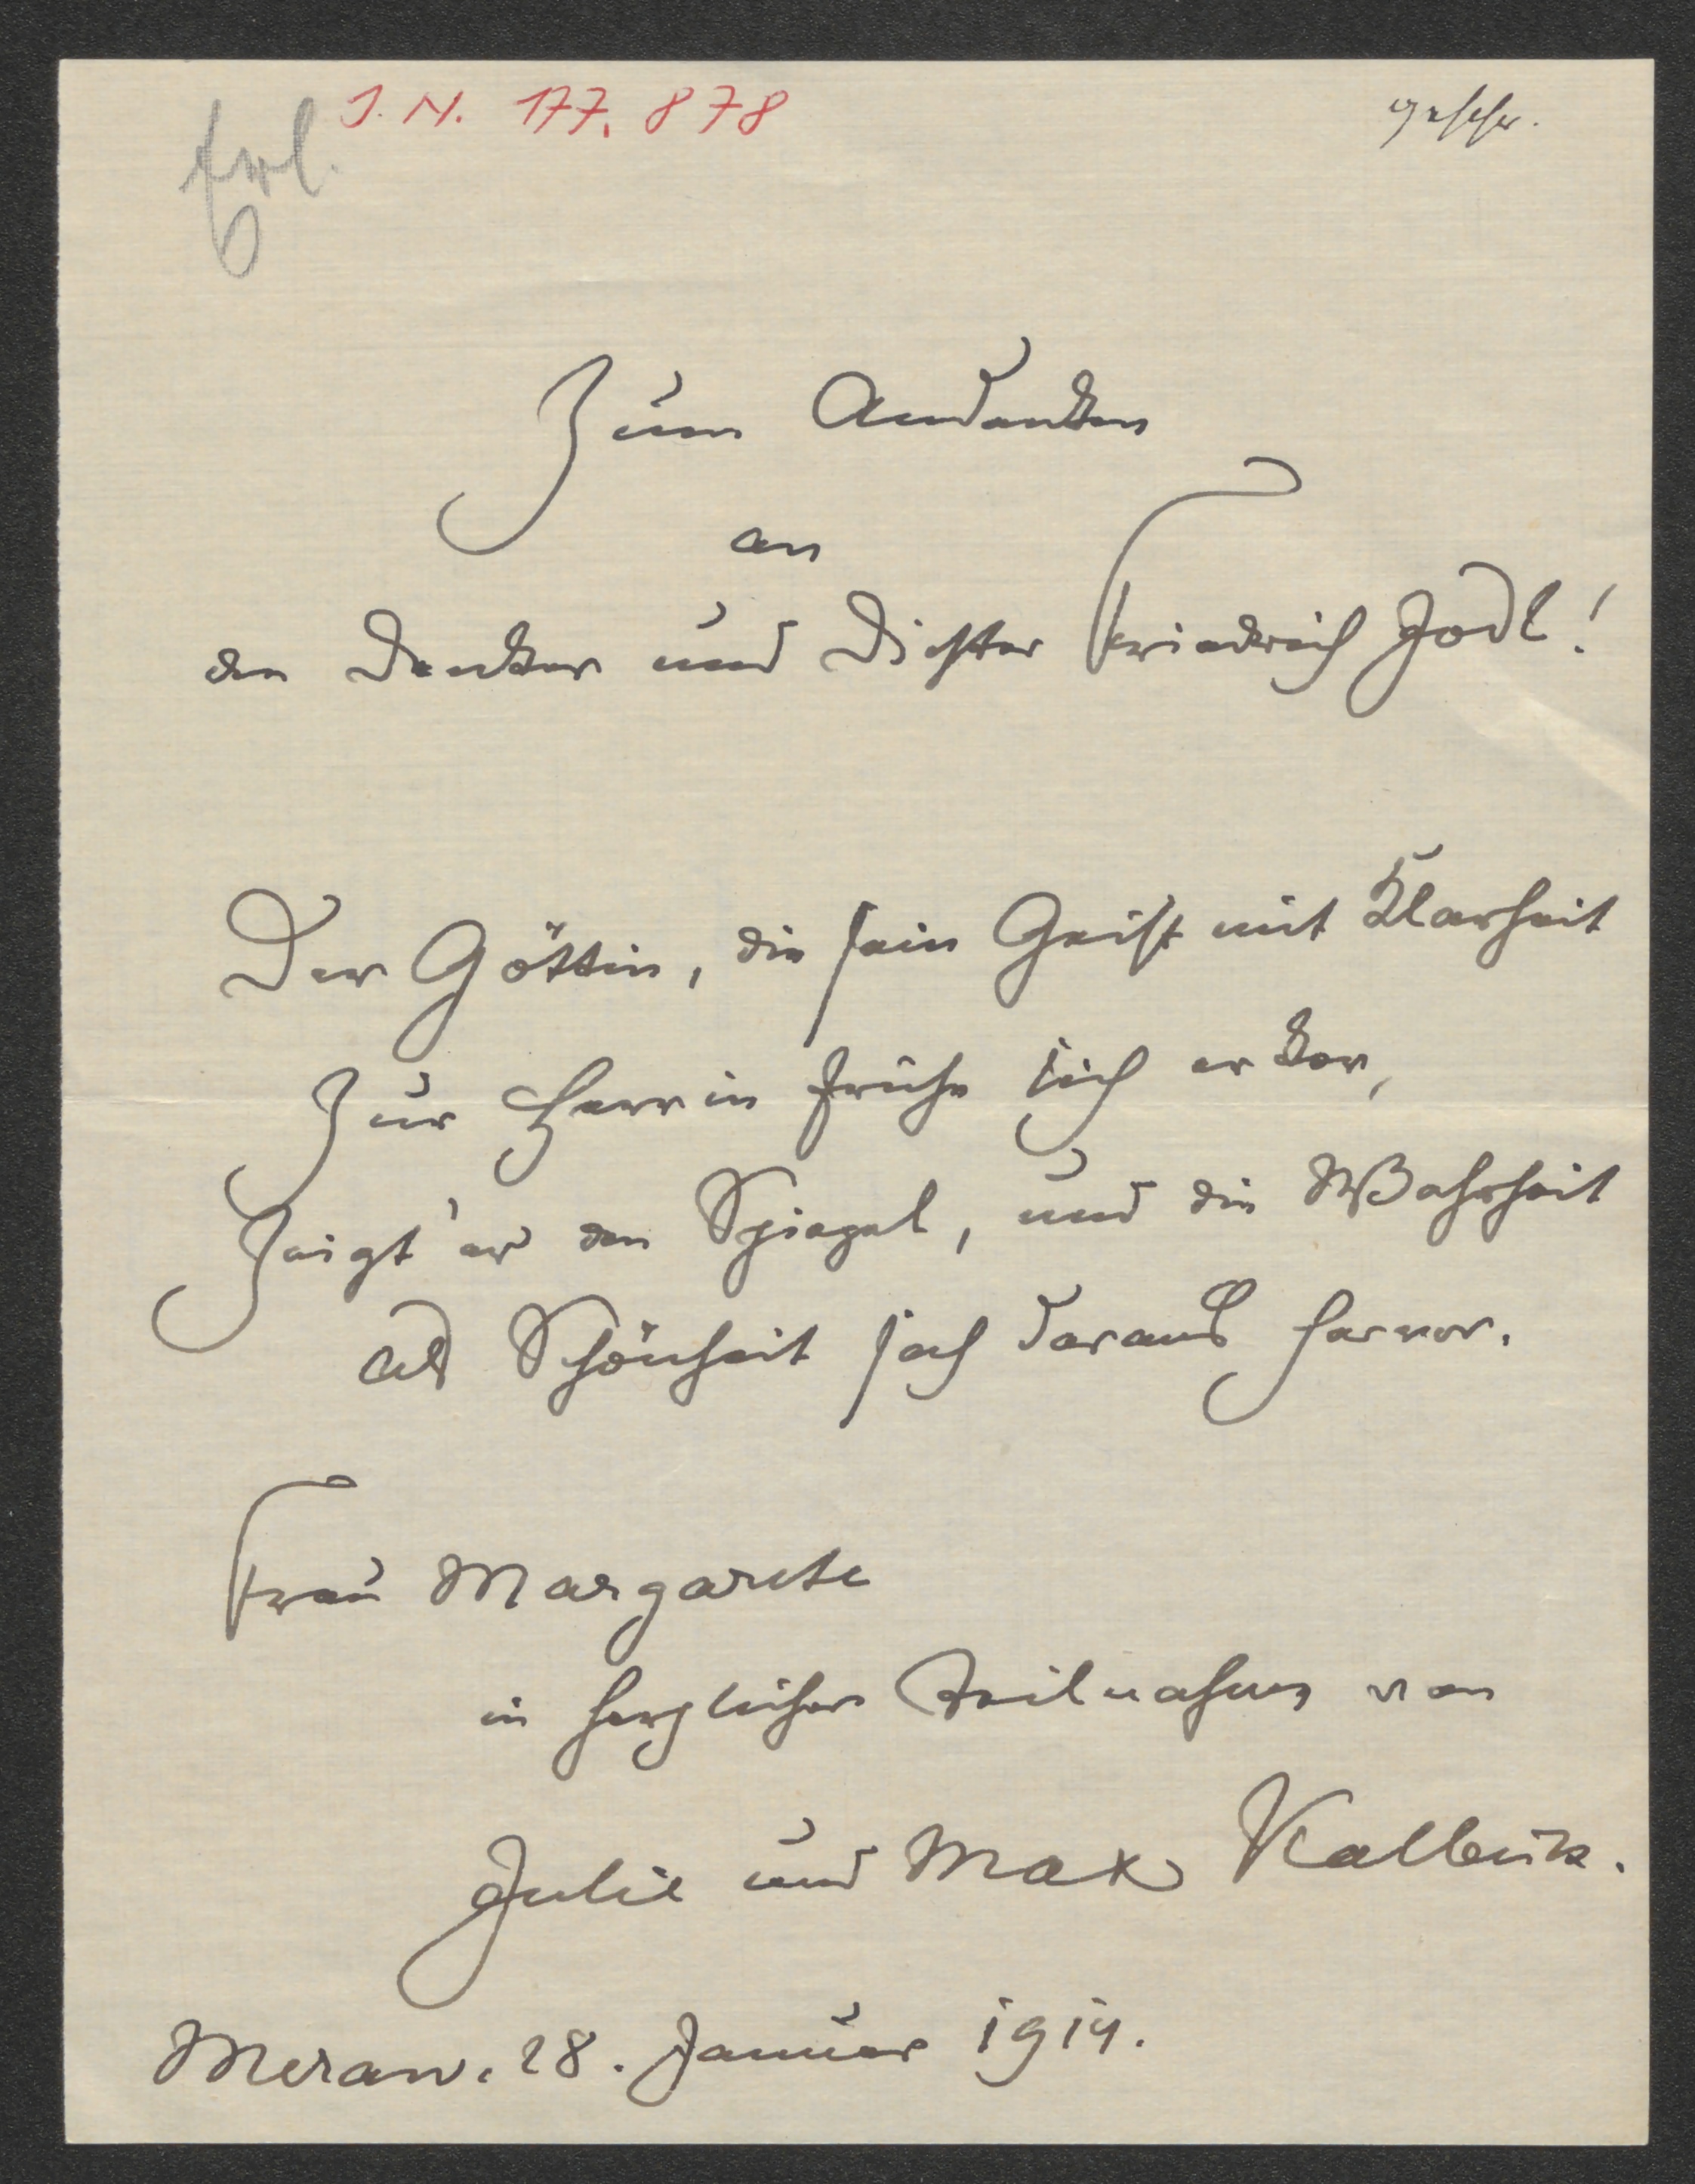 erl.
J. N. 177.878
geschr.
Zum Andenken
an
den Denker und Dichter Friedrich Jodl!
Der Göttin, die sein Geist mit Klarheit
Zur Herrin frühe sich erkor,
Zeigt' er den Spiegel, und die Wahrheit
als Schönheit sah daraus hervor.
Frau Margarete
in herzlicher Teilnahme von
Julie und Max Kalbeck.
Meran. 28. Januar 1914.